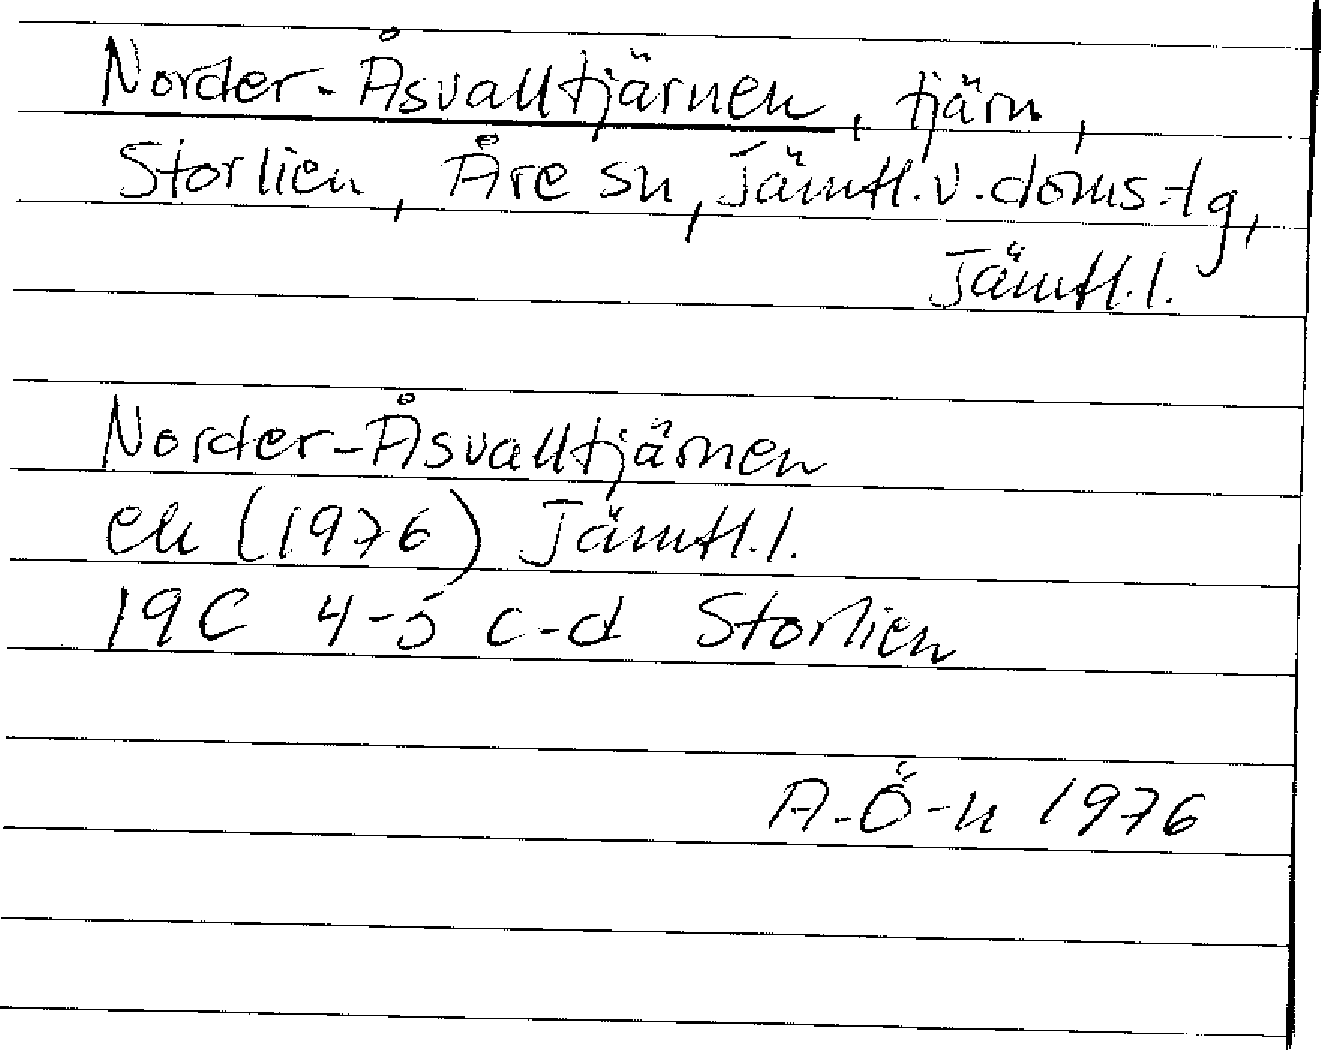 Norder-Åsvalltjärnen, tjärn,
Storlien, Åre sn, Jämtl.v.doms.tg,
Jämtl.l.
Norder-Åsvalltjärnen
ek (1976) Jämtl.l.
19C 4-5 c-d Storlien
A-Ö-n 1976